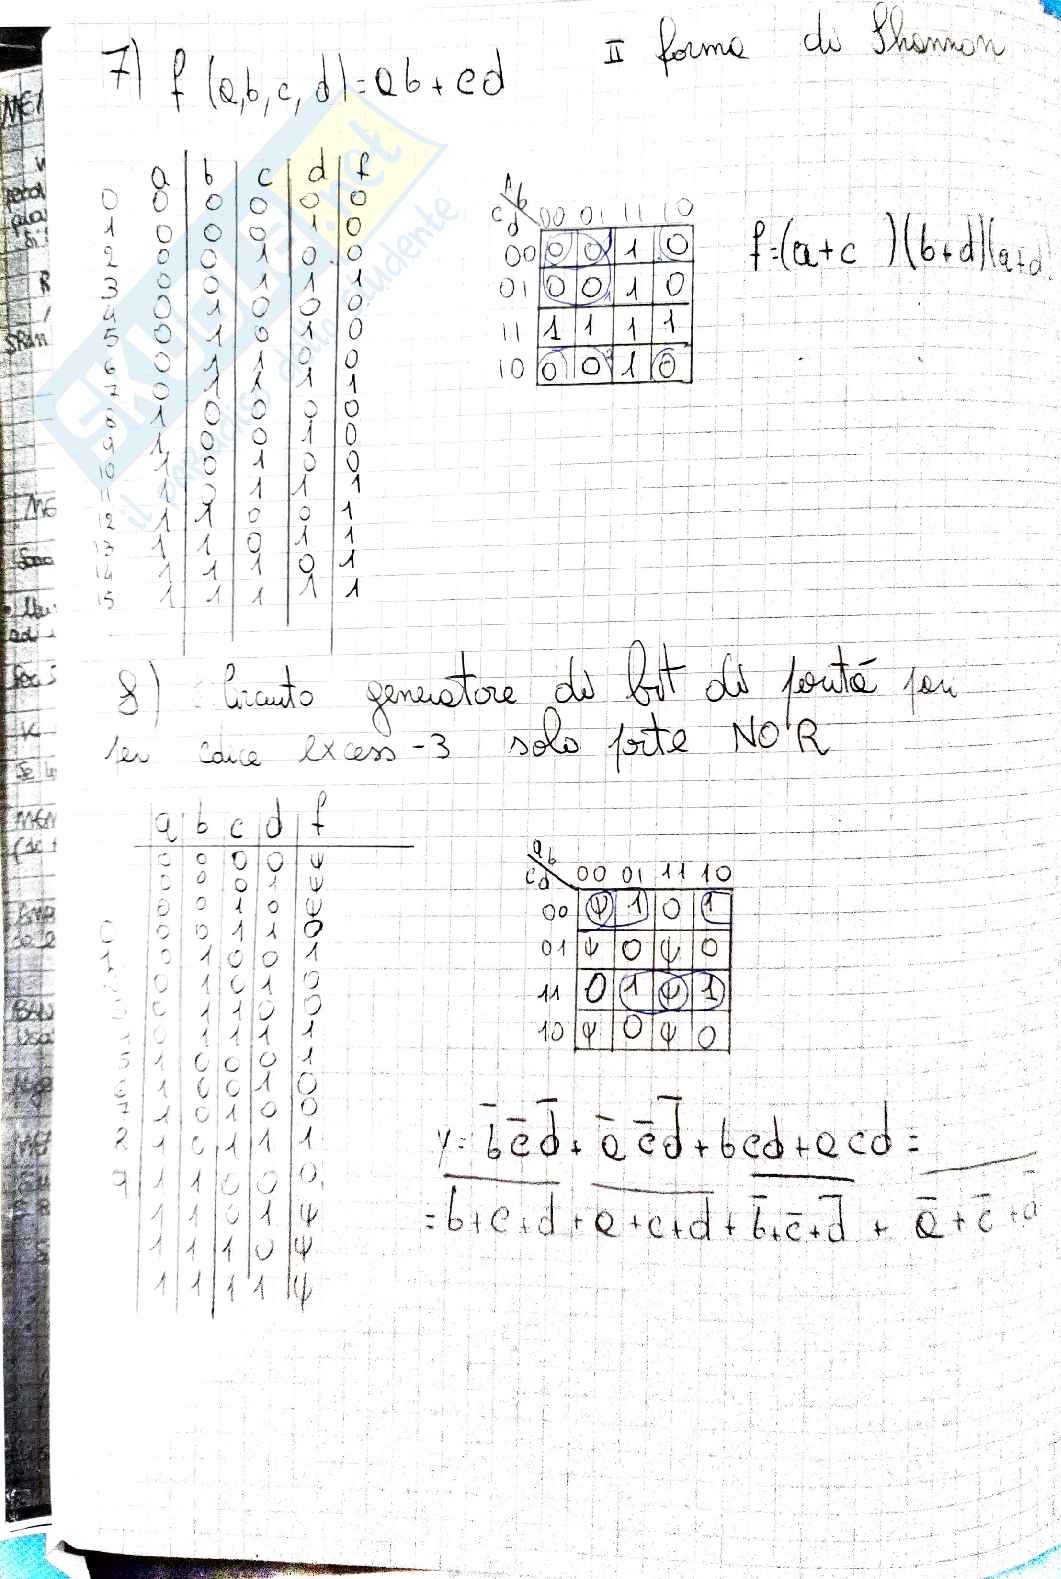 7) f (a,b,c,d)=ab+cd
II forma di Shannon
a b c d f
0 0 0 0 0 0
1 0 0 0 1 0
2 0 0 1 0 0
3 0 0 1 1 1
4 0 1 0 0 0
5 0 1 0 1 0
6 0 1 1 0 0
7 0 1 1 1 1
8 1 0 0 0 0
9 1 0 0 1 0
10 1 0 1 0 0
11 1 0 1 1 1
12 1 1 0 0 1
13 1 1 0 1 1
14 1 1 1 0 1
15 1 1 1 1 1
ab
cd 00 01 11 10
00 0 0 1 0
01 0 0 1 0
11 1 1 1 1
10 0 0 1 0
f=(a+c )(b+d)(a+d
skuola.net
il paradiso dello studente
8) Circuito generatore di bit di
per excess-3 solo porte NOR
a b c d f
0 0 0 0 ψ
0 0 0 1 ψ
0 0 1 0 ψ
0 0 1 1 0
0 1 0 0 1
0 1 0 1 0
0 1 1 0 0
0 1 1 1 1
1 0 0 0 1
1 0 0 1 0
1 0 1 0 0
1 0 1 1 1
1 1 0 0 0
1 1 0 1 ψ
1 1 1 0 ψ
1 1 1 1 ψ
ab
cd 00 01 11 10
00 ψ 1 0 1
01 ψ 0 ψ 0
11 0 1 ψ 1
10 ψ 0 ψ 0
y= b̅ c̅ d̅ + a̅ c̅ d̅ + bcd + acd =
= b+c+d + a+c+d + b̅+c̅+d̅ + a̅ + c̅ +